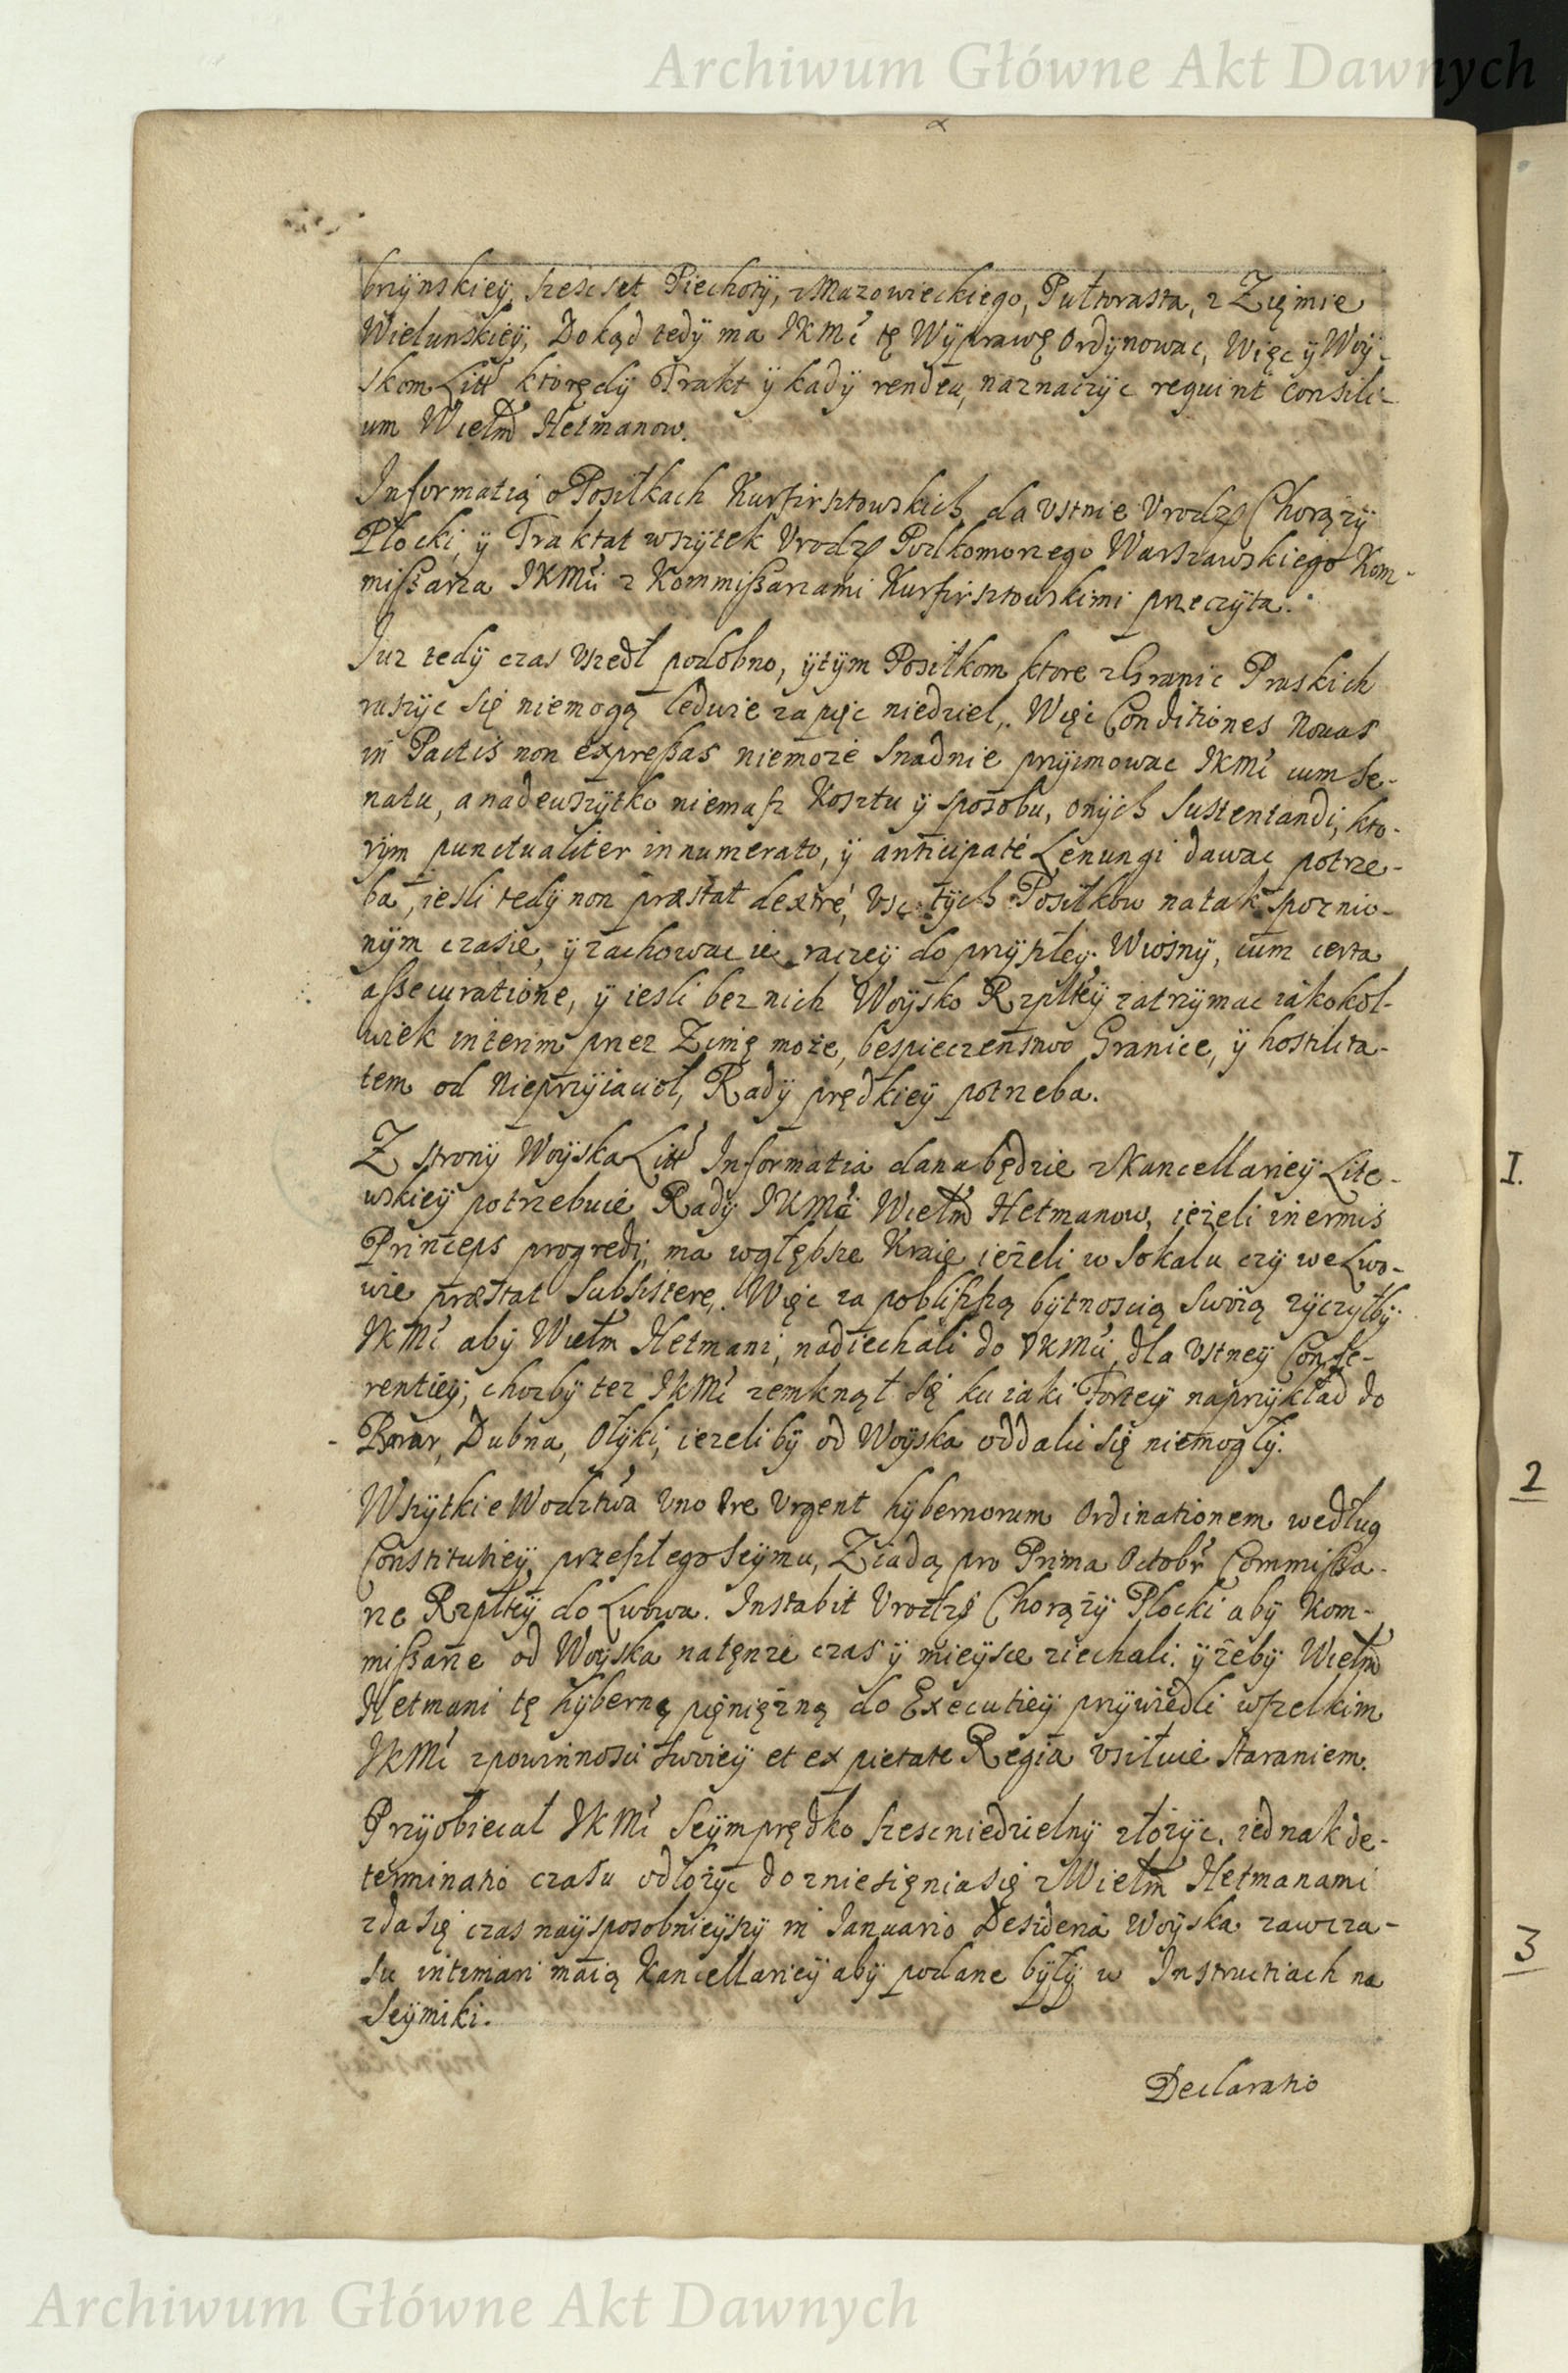 Archiwum Główne Akt Dawnych
brzÿnskieÿ, szescset Piechotÿ, z Mazowieckiego, Pułtorasta, z Zięmie
Wielunskieÿ, Dokąd tedÿ ma JKMć tę Wÿprawę Ordÿnowac, Więc ÿ Woÿ-
skom Litt ktorędÿ Trakt ÿ kadÿ rendeu, naznaczÿc requirit consili-
um Wielm Hetmanow.
Informatią o Posiłkach Kurfirsztowskich da Ustnie Urodz Chorązÿ
Płocki, ÿ Traktat wszÿtek Urodz Podkomorzego Warszawskiego Kom-
mißarza JKMći z Kommißarzami Kurfirsztowskimi przeczÿta.
Juz tedÿ czas Uszedł podobno, ÿ tÿm Posiłkom ktore z Granic Pruskich
ruszÿc się niemogą ledwie za pięc niedziel, Więc Conditiones Nouas
in Pactis non expreßas niemoze Snadnie przÿimowac JKMć cum Se-
natu, a nadewszÿtko niemasz Kosztu ÿ sposobu, onÿch Sustentandi, kto-
rÿm punctualiter in numerato, ÿ anticipaté Lenungi dawac potrze-
ba, iesli tedÿ non præstat dextré, Usc tÿch Posiłkow na tak spoznio-
nÿm czasie, ÿ zachowac ie raczeÿ do przÿszłeÿ Wiosnÿ, cum certa
aßecuratione, ÿ iesli bez nich Woÿsko Rzpltÿ zatrzÿmac iakokol-
wiek interim przez Zimę może, bespieczenstwo Granice, ÿ hostilita-
tem od Nieprzÿiaciol, Radÿ prędkieÿ potrzeba.
Z stronÿ Woÿska Litt Informatia dana będzie z Kancellarieÿ Lite-
wskieÿ potrzebuie Radÿ JKMć Wielm Hetmanow, ieżeli inermis
Princeps progredi, ma wgłębsze Kraie ieżeli w Sokalu czÿ we Lwo-
wie præstat Subsistere. Więc za poblişzą bÿtnoscią Swoią zÿczÿłbÿ
JKMć abÿ Wielm Hetmani, nadiechali do JKMći, dla Ustneÿ Confe-
rentieÿ, chocbÿ tez JKMć zemknął się ku iaki Forteÿ naprzÿkład do
Dubna, Ołÿki, iezeli bÿ od Woÿska oddalic się niemoglÿ.
Wszÿtkie Wodztwa Uno Ore Urgent hÿbernorum Ordinationem według
Constitutieÿ, przeszłego Seÿmu, Ziadą pro Prima Octobr Commißa-
rze Rzpltÿ do Lwowa. Instabit Urodz Chorązÿ Płocki abÿ Kom-
mißarze od Woÿska natęnze czas ÿ mieÿsce ziechali, ÿ żebÿ Wielm
Hetmani tę hÿberną pięnięzną do Executieÿ przÿwiedli wszelkim
JKMć z powinnosci Swoieÿ et ex pietate Regia usiłuie staraniem.
Przÿobiecał JKMć Seÿm prędko szescniedzielnÿ złożÿc, iednak de-
terminatio czasu odłożÿc do zniesięnia się z Wielm Hetmanami
zda się czas naÿsposobnieÿszÿ in Januario Desideria Woÿska zawcza-
su intimari maią Kancellarieÿ abÿ podane bÿłÿ w Instructiach na
Seÿmiki.
Declaratio
I.
2
3
Archiwum Główne Akt Dawnych